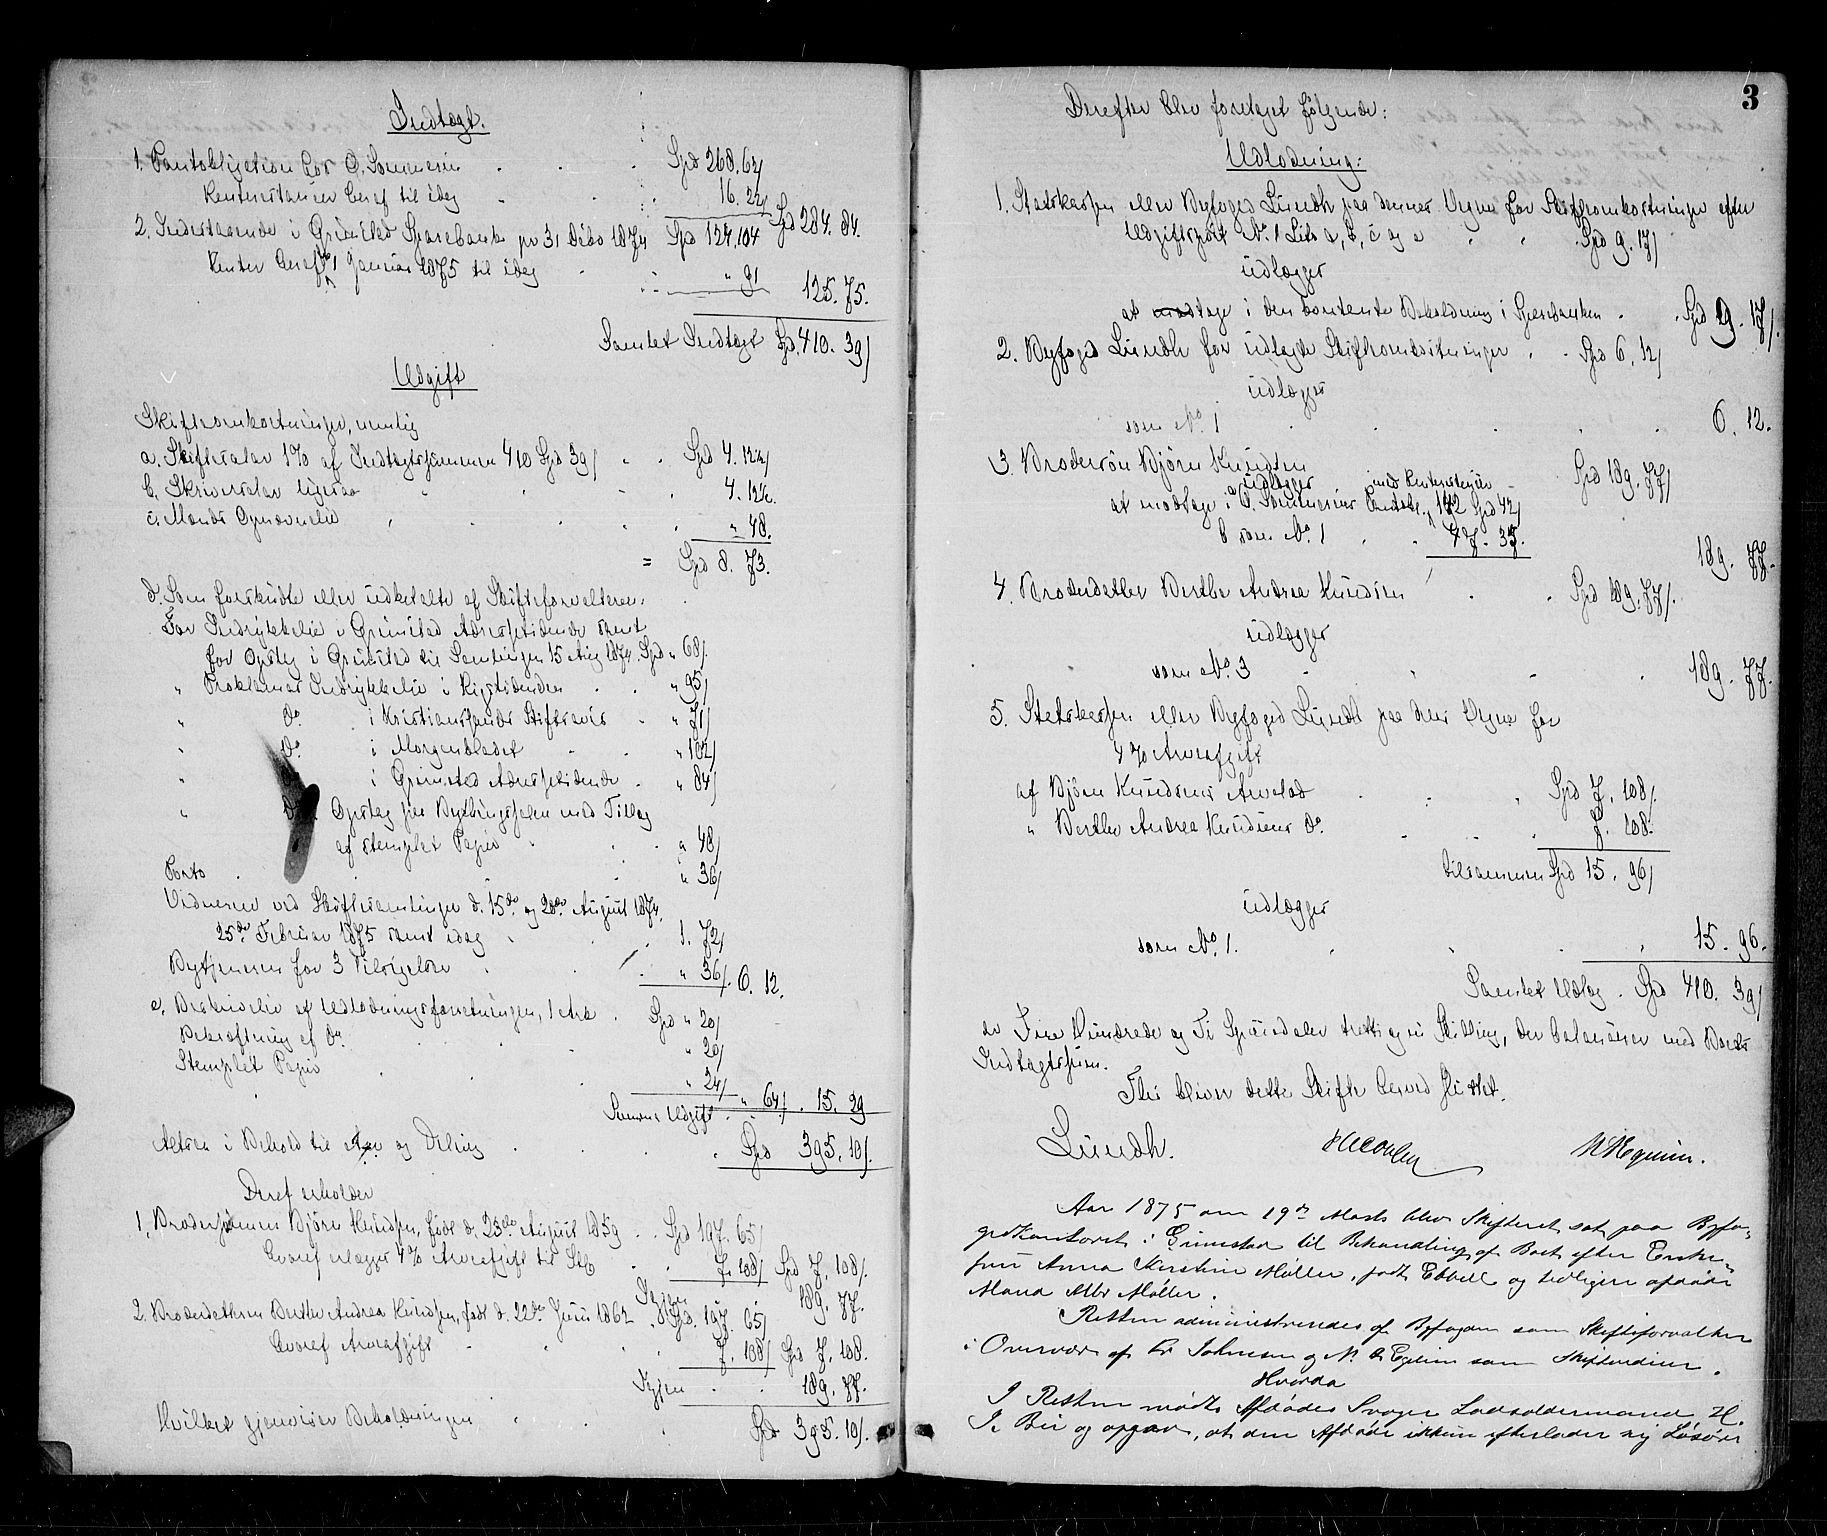 Indtægt.
1. Pantobligation hos O. Sommersin . . . Spd 268.62/
Renterestancer heraf til idag . . . 16.22/ Spd 284.84.
2. Indestaaende i Grimstad Sparebank pr 31 Debr 1874 Spd 124.104
Renter heraf fra 1 Januar 1875 til idag . . . " 91 125.75.
Samlet Indtægt Spd 410.39/
Udgift
Skifteomkostninger, nemlig
a. Skiftesalær 1% af Indtægtssummen 410 Spd 39/ . . Spd 4.12½/
b. Skriversalær ligesaa . . . 4.12½.
c. Mænds Overværelse . . . " 48.
= Spd 8.73.
d. Som forskudte eller udbetalte af Skifteforvalteren:
For Indrykkelse i Grimstad Adressetidende samt
for Opslag i Grimstad til Samlingen 15 Aug 1874. Spd " 68/.
" Proklamas Indrykkelse i Rigstidenden . . " 95/
" Do. i Kristianssands Stiftsavis . " 71/
" Do. i Morgenbladet . . " 102/
" Do. i Grimstad Adressetidende . " 84/
" Do. Opslag paa Bythingsstuen med Tillæg
af stemplet Papir . . . " 48/
Porto . . . " 36/
Vidnerne ved Skiftesamlinger d. 15de og 28de August 1874,
25de Februar 1875 samt idag . . . 1.72/
Bytjeneren for 3 Tilsigelser . . . " 36/. 6.12.
e, Beskrivelse af Udlodningsforretningen, 1 Ark . Spd " 20/
Bekræftning af Do. . . . " 20/
Stemplet Papir . . . " 24/ " 64/. 15.29
Summa Udgift
Altsaa i Behold til Arv og Deling . . . Spd 395.10/.
Deraf erholder
1, Brodersønnen Bjørn Knudsen, født d. 23de August 1859 . . Spd 197.65/
hvoraf erlægges 4% Arveafgift til Stk . . 7.108/ Spd 7.108/.
Igjen 189.77.
2. Broderdatteren Berthe Andrea Knudsen, født d. 22de Juni 1862 . Spd. 197.65/
hvoraf Arveafgift . . . 7.108/ Spd 7.108.
Igjen . . 189.77.
Hvilket gjenviser Beholdningen . . . Spd 395.10/.
3
Derefter blev foretaget følgende:
Udlodning:
1. Statskassen eller Byfoged Lundh paa dennes Vegne for Skifteomkostninger efter
Udgiftspost No. 1 Litr a, b, c og e . . . Spd 9.17/
udlægges
at modtage i den kontante Beholdning i Sparebanken . . Spd 9.17/.
2. Byfoged Lundh for udlagte Skifteomkostninger . . Spd 6.12/
udlægges
som No. 1 . . . 6.12.
3. Brodersøn Bjørn Knudsen . . . Spd 189.77/
udlægges
at modtage i a O. Sommersins Pantobl. med Renterestancer 142 Spd 42/
b som No. 1 . . 47.35.
189.77.
4. Broderdatter Berthe Andrea Knudsen . . Spd 189.77/.
udlægges
som No. 3 . . . 189.77.
5. Statskassen eller Byfoged Lundh paa dens Vegne for
4% Arveafgift
af Bjørn Knudsens Arvelod . . . Spd 7.108/.
" Berthe Andrea Knudsens Do. . . . 7.108.
tilsammen Spd 15.96/
udlægges
som No. 1. . . . 15.96.
Samlet Udlæg . Spd 410.39/
er Fire Hundrede og Ti Speciedaler tretti og ni Skilling, der balancerer med Boets
Indtægtssum.
Thi bliver dette Skifte herved sluttet.
Lundh. N. Egeium.
Aar 1875 den 19de Marts blev Skifteret sat paa Byfo-
gedkontoret i Grimstad til Behandling af Boet efter Enke-
fru Anna Kirstine Møller, født Ebbell og tidligere afdøde
Mand Møller.
Retten administreredes af Byfogden som Skifteforvalter
i Overvær af Johnsen og N. Egeium som Skiftevidner.
Hvorda
I Retten mødte Afdødes Svoger Lodsoldermand H.
J. Bie og opgav, at den Afdøde ikkun efterlader sig Løsøre